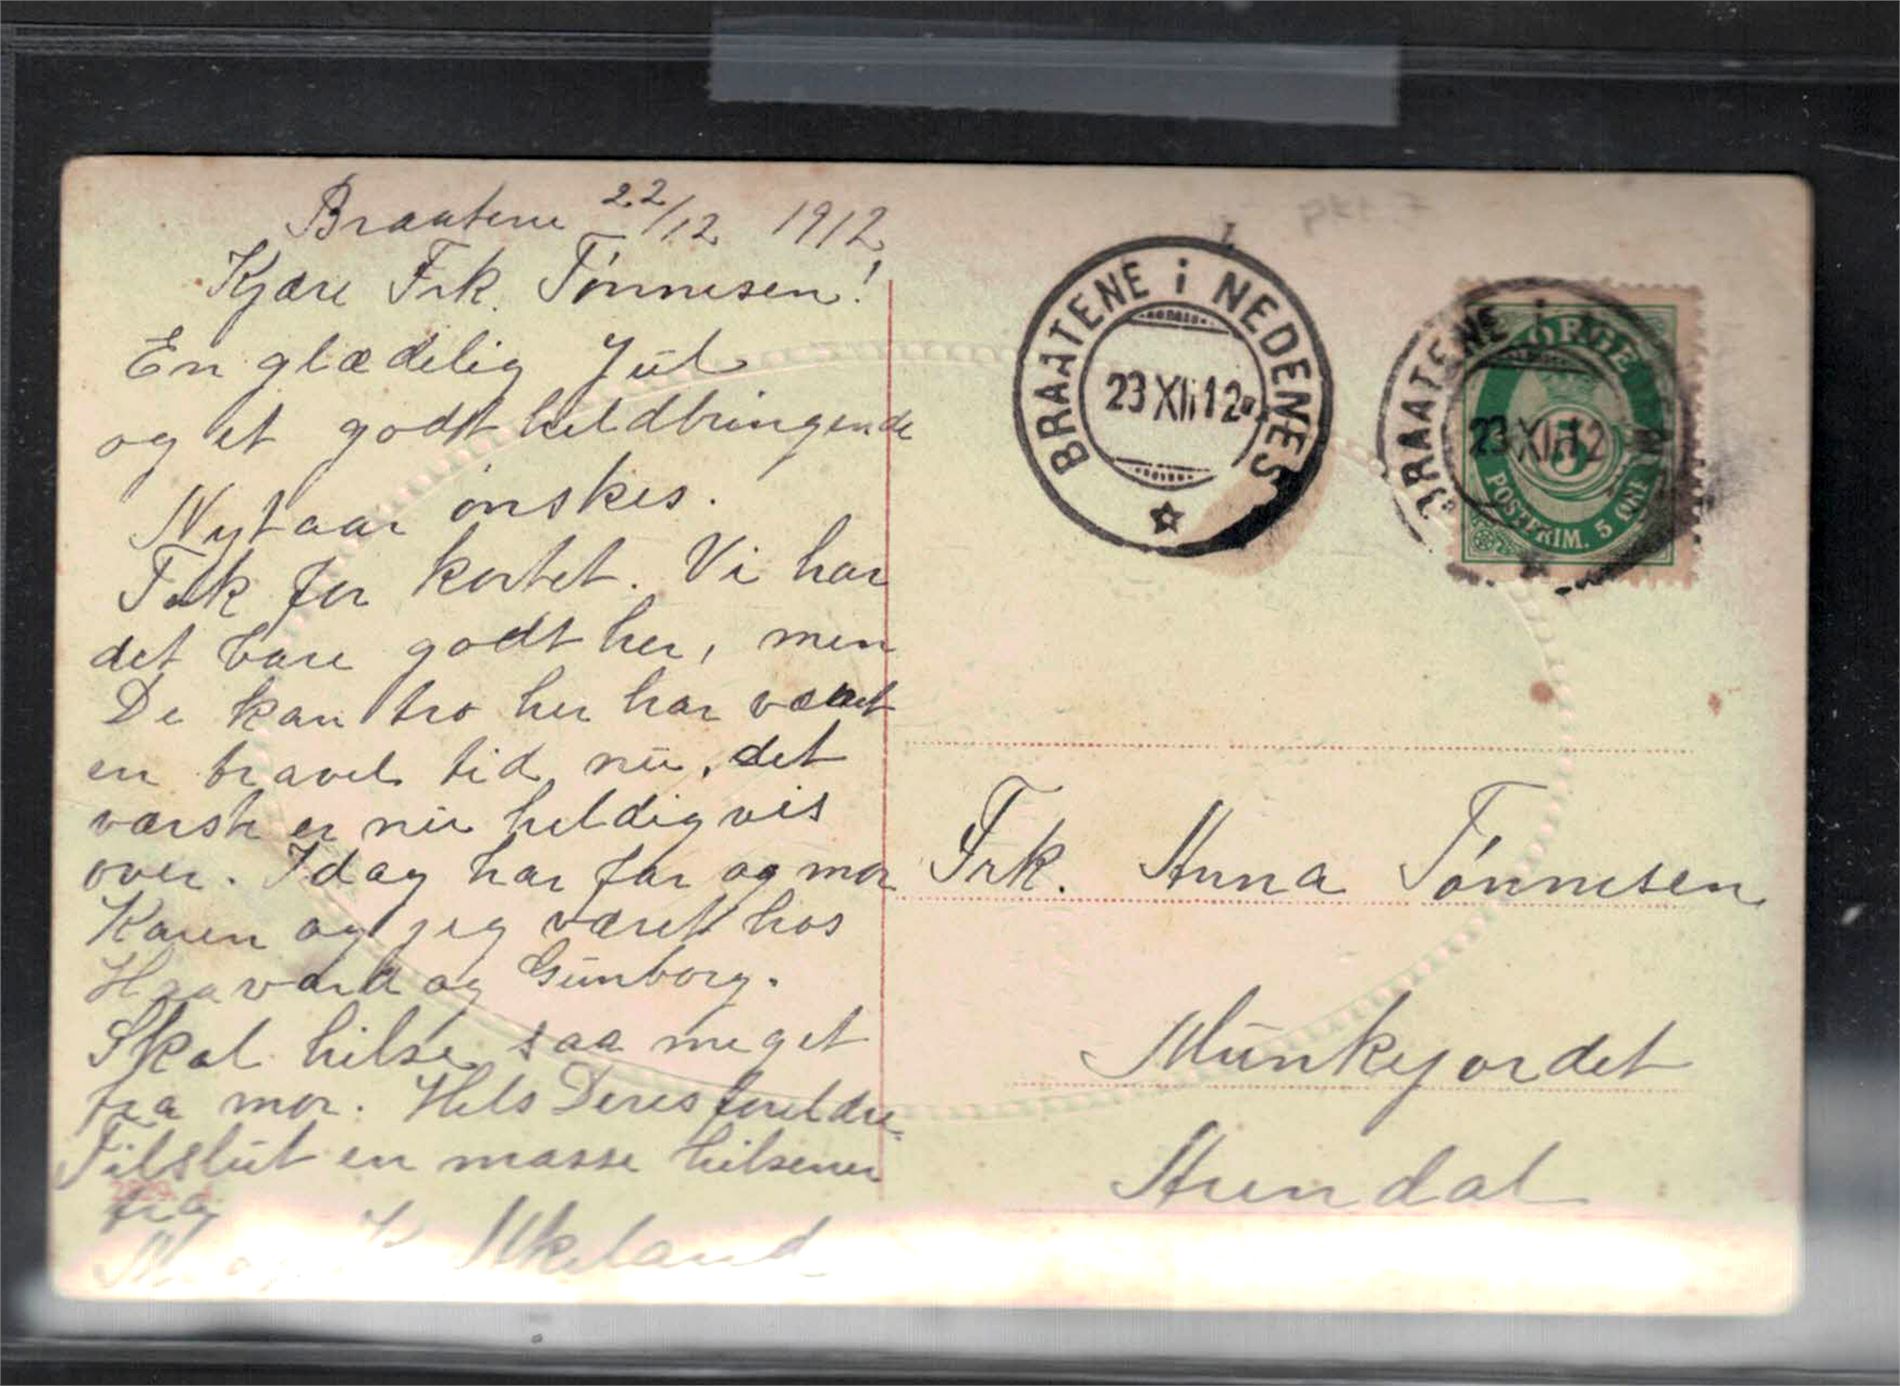 Braatene 22/12 1912
Kjære Frk. Tønnesen!
En glædelig Jul
og et godt heldbringende
Nytaar ønskes.
Tak for kortet. Vi har
det bare godt her, men
De kan tro her har været
en travel tid nu, det
værste er nu heldigvis
over. Idag har far og mor
Karen og jeg været hos
Haavard og Gunborg.
Skal hilse saa meget
fra mor. Hils Deres foreldre.
Tilslut en masse hilsener
fra
Akeland
BRAATENE i NEDENES
23 XII 12
BRAATENE i
23 XII 12
NORGE
5
POSTFRIM. 5 ØRE
Frk. Anna Tønnesen
Munkejordet
Arendal